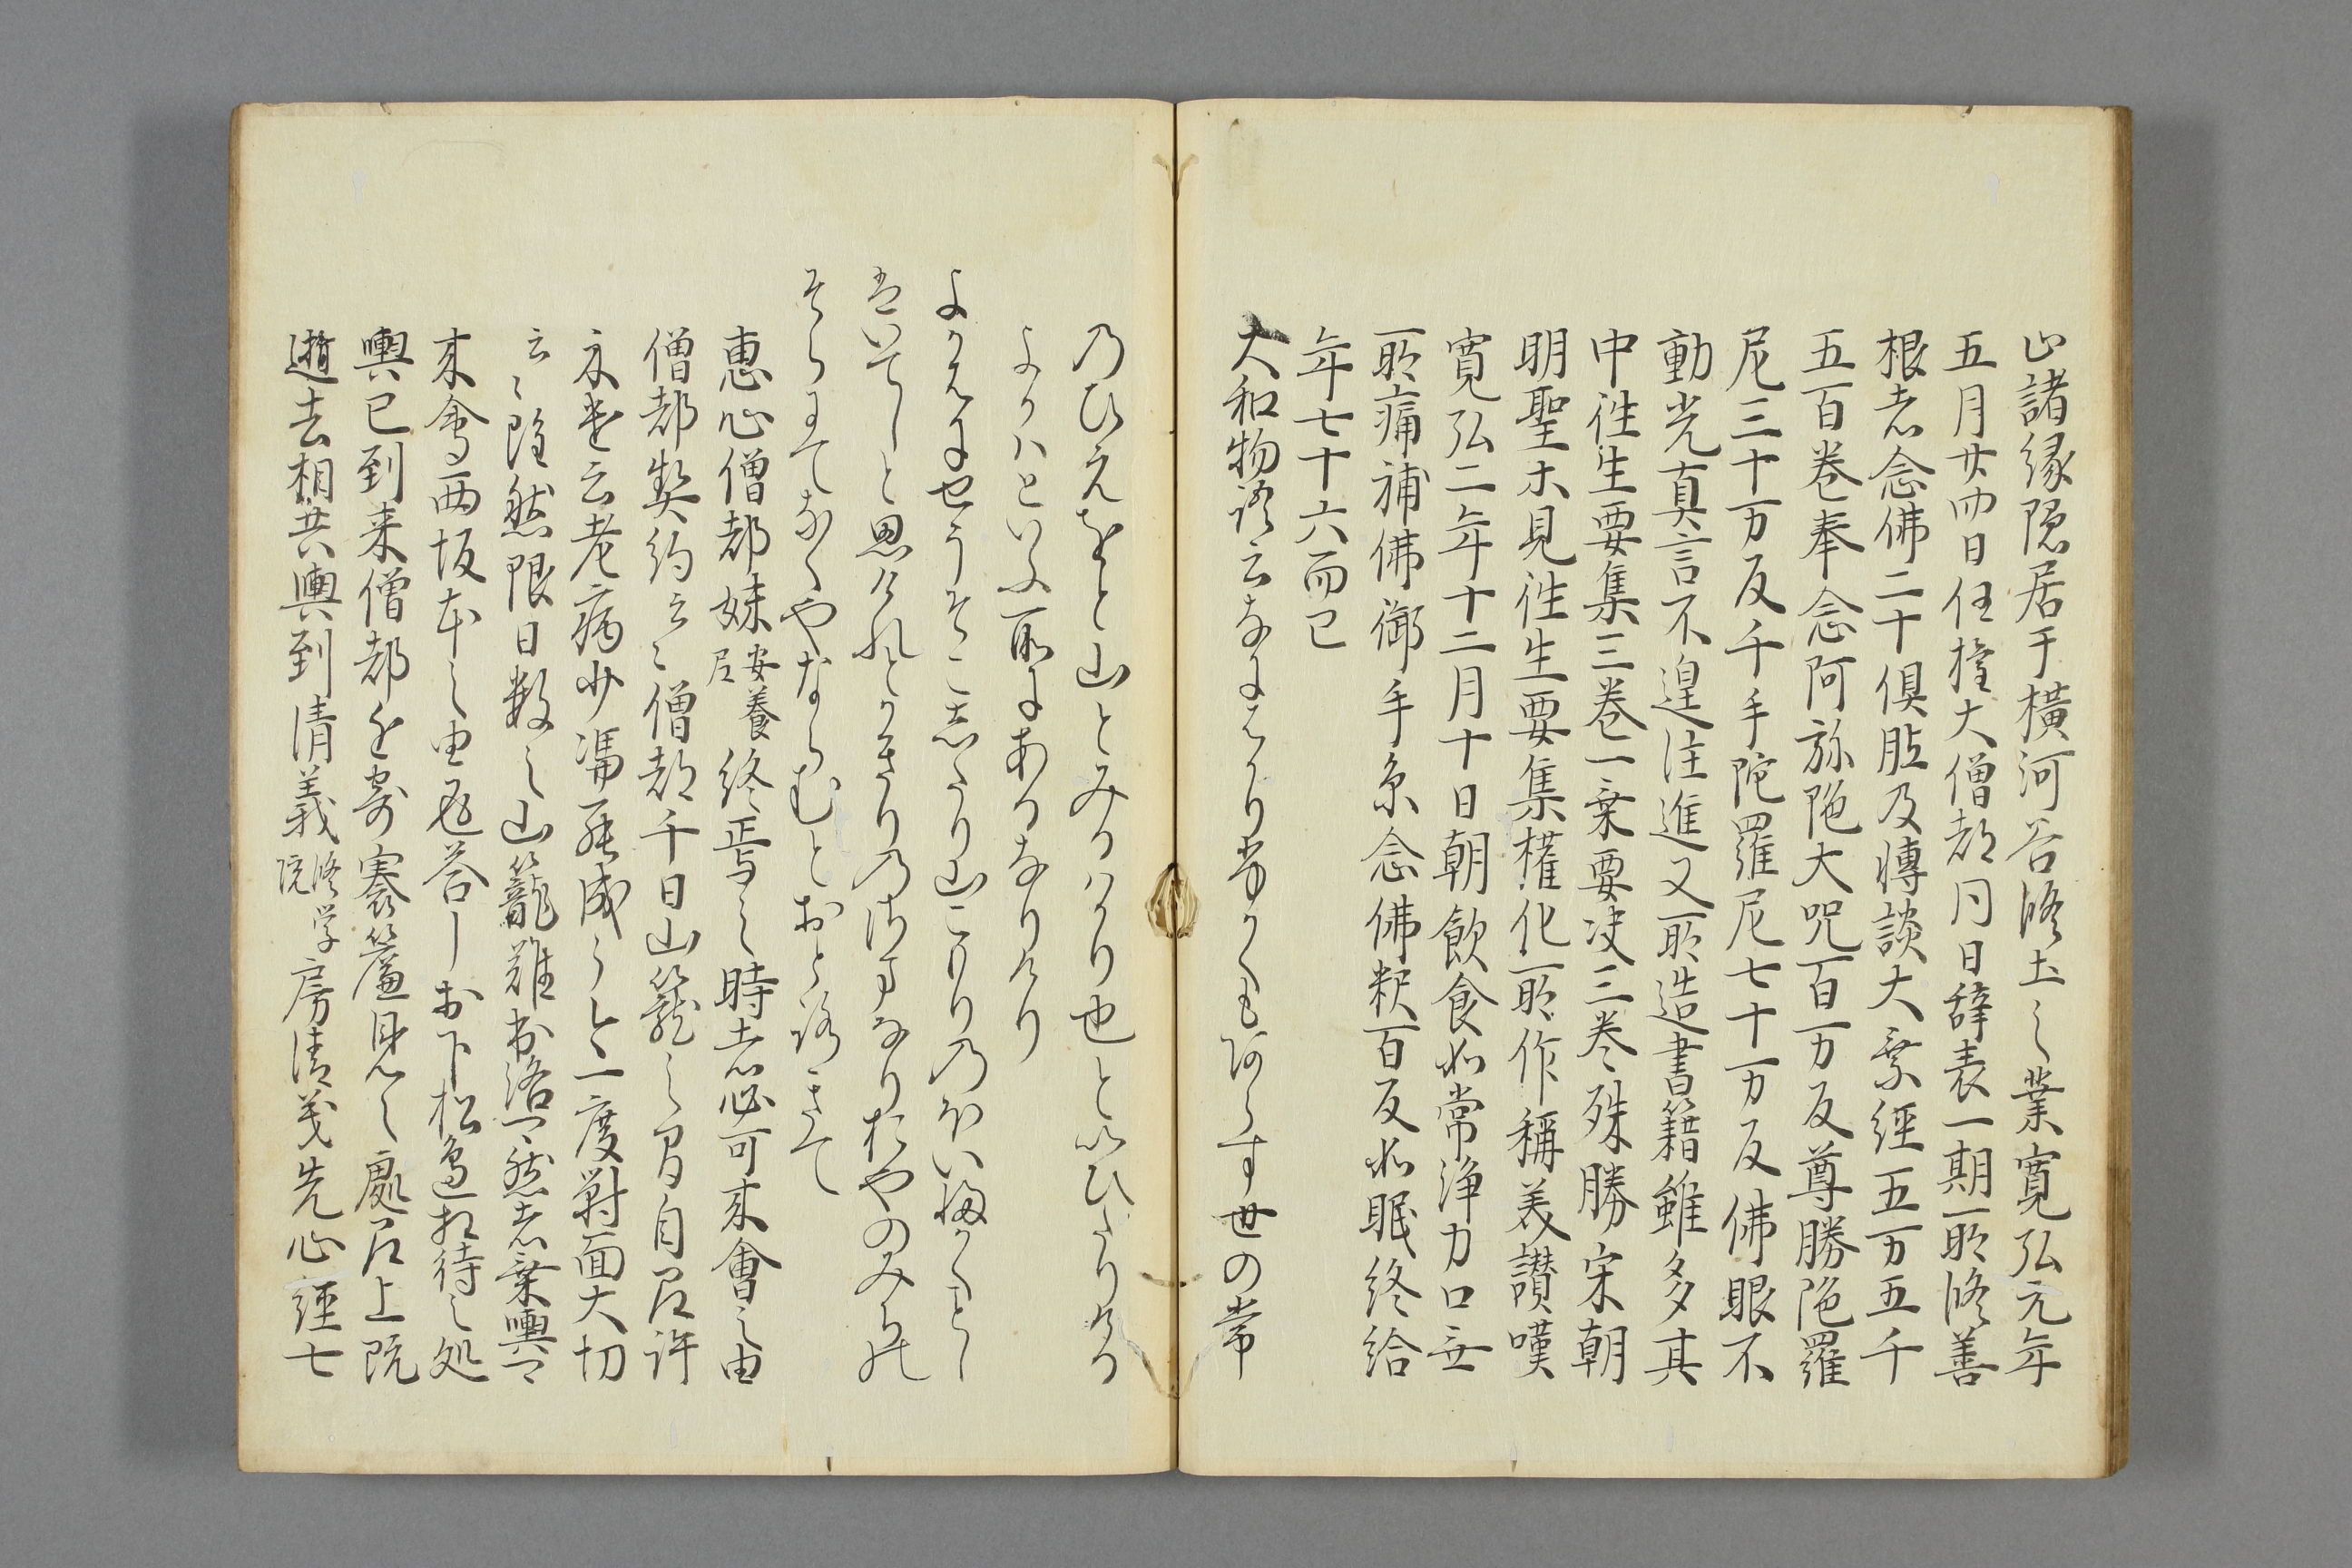 止諸縁隠居于横河谷修土之業寛弘元年
五月廿四日任権大僧都同日辞表一期所修善
根者念佛二十倶胝及轉談大乗經五万五千
五百巻奉念阿弥陀大呪百万反尊勝陀羅
尼三十万反千手陀羅尼七十万反佛眼不
動光真言不遑注進又所造書籍雖多其
中往生要集三巻一乗要决三巻殊勝宋朝
明聖等見往生要集權化所作稱美讃嘆
寛弘二年十二月十日朝飲食如常浄力口無
所痛補佛御手糸念佛釈百反如眠終給
年七十六而已
大和物語云なにはかり常かくもあらす世の常
乃ひえをと山とみるはかり也といひたりける
よかはといふ所にあるなりけり
よかはにせうそこしたり山こもりの
はいてしと思けれとかきりのたひなりおやのみちの
そらにてなくやならむとおとろきて
恵心僧都妹安養尼終焉之時者必可来會之由
僧都契約云々僧都千日山籠之間自尼許
示送云老病少馮難成うへ今一度對面大切
云々雖然限日数之山籠難出洛一然者乗輿テ
来會西坂本之由返答し出下松邊相待之処
輿已到来僧都令寄褰簾見之處尼上既
逝去相共輿到清義修学院房清義先心經七